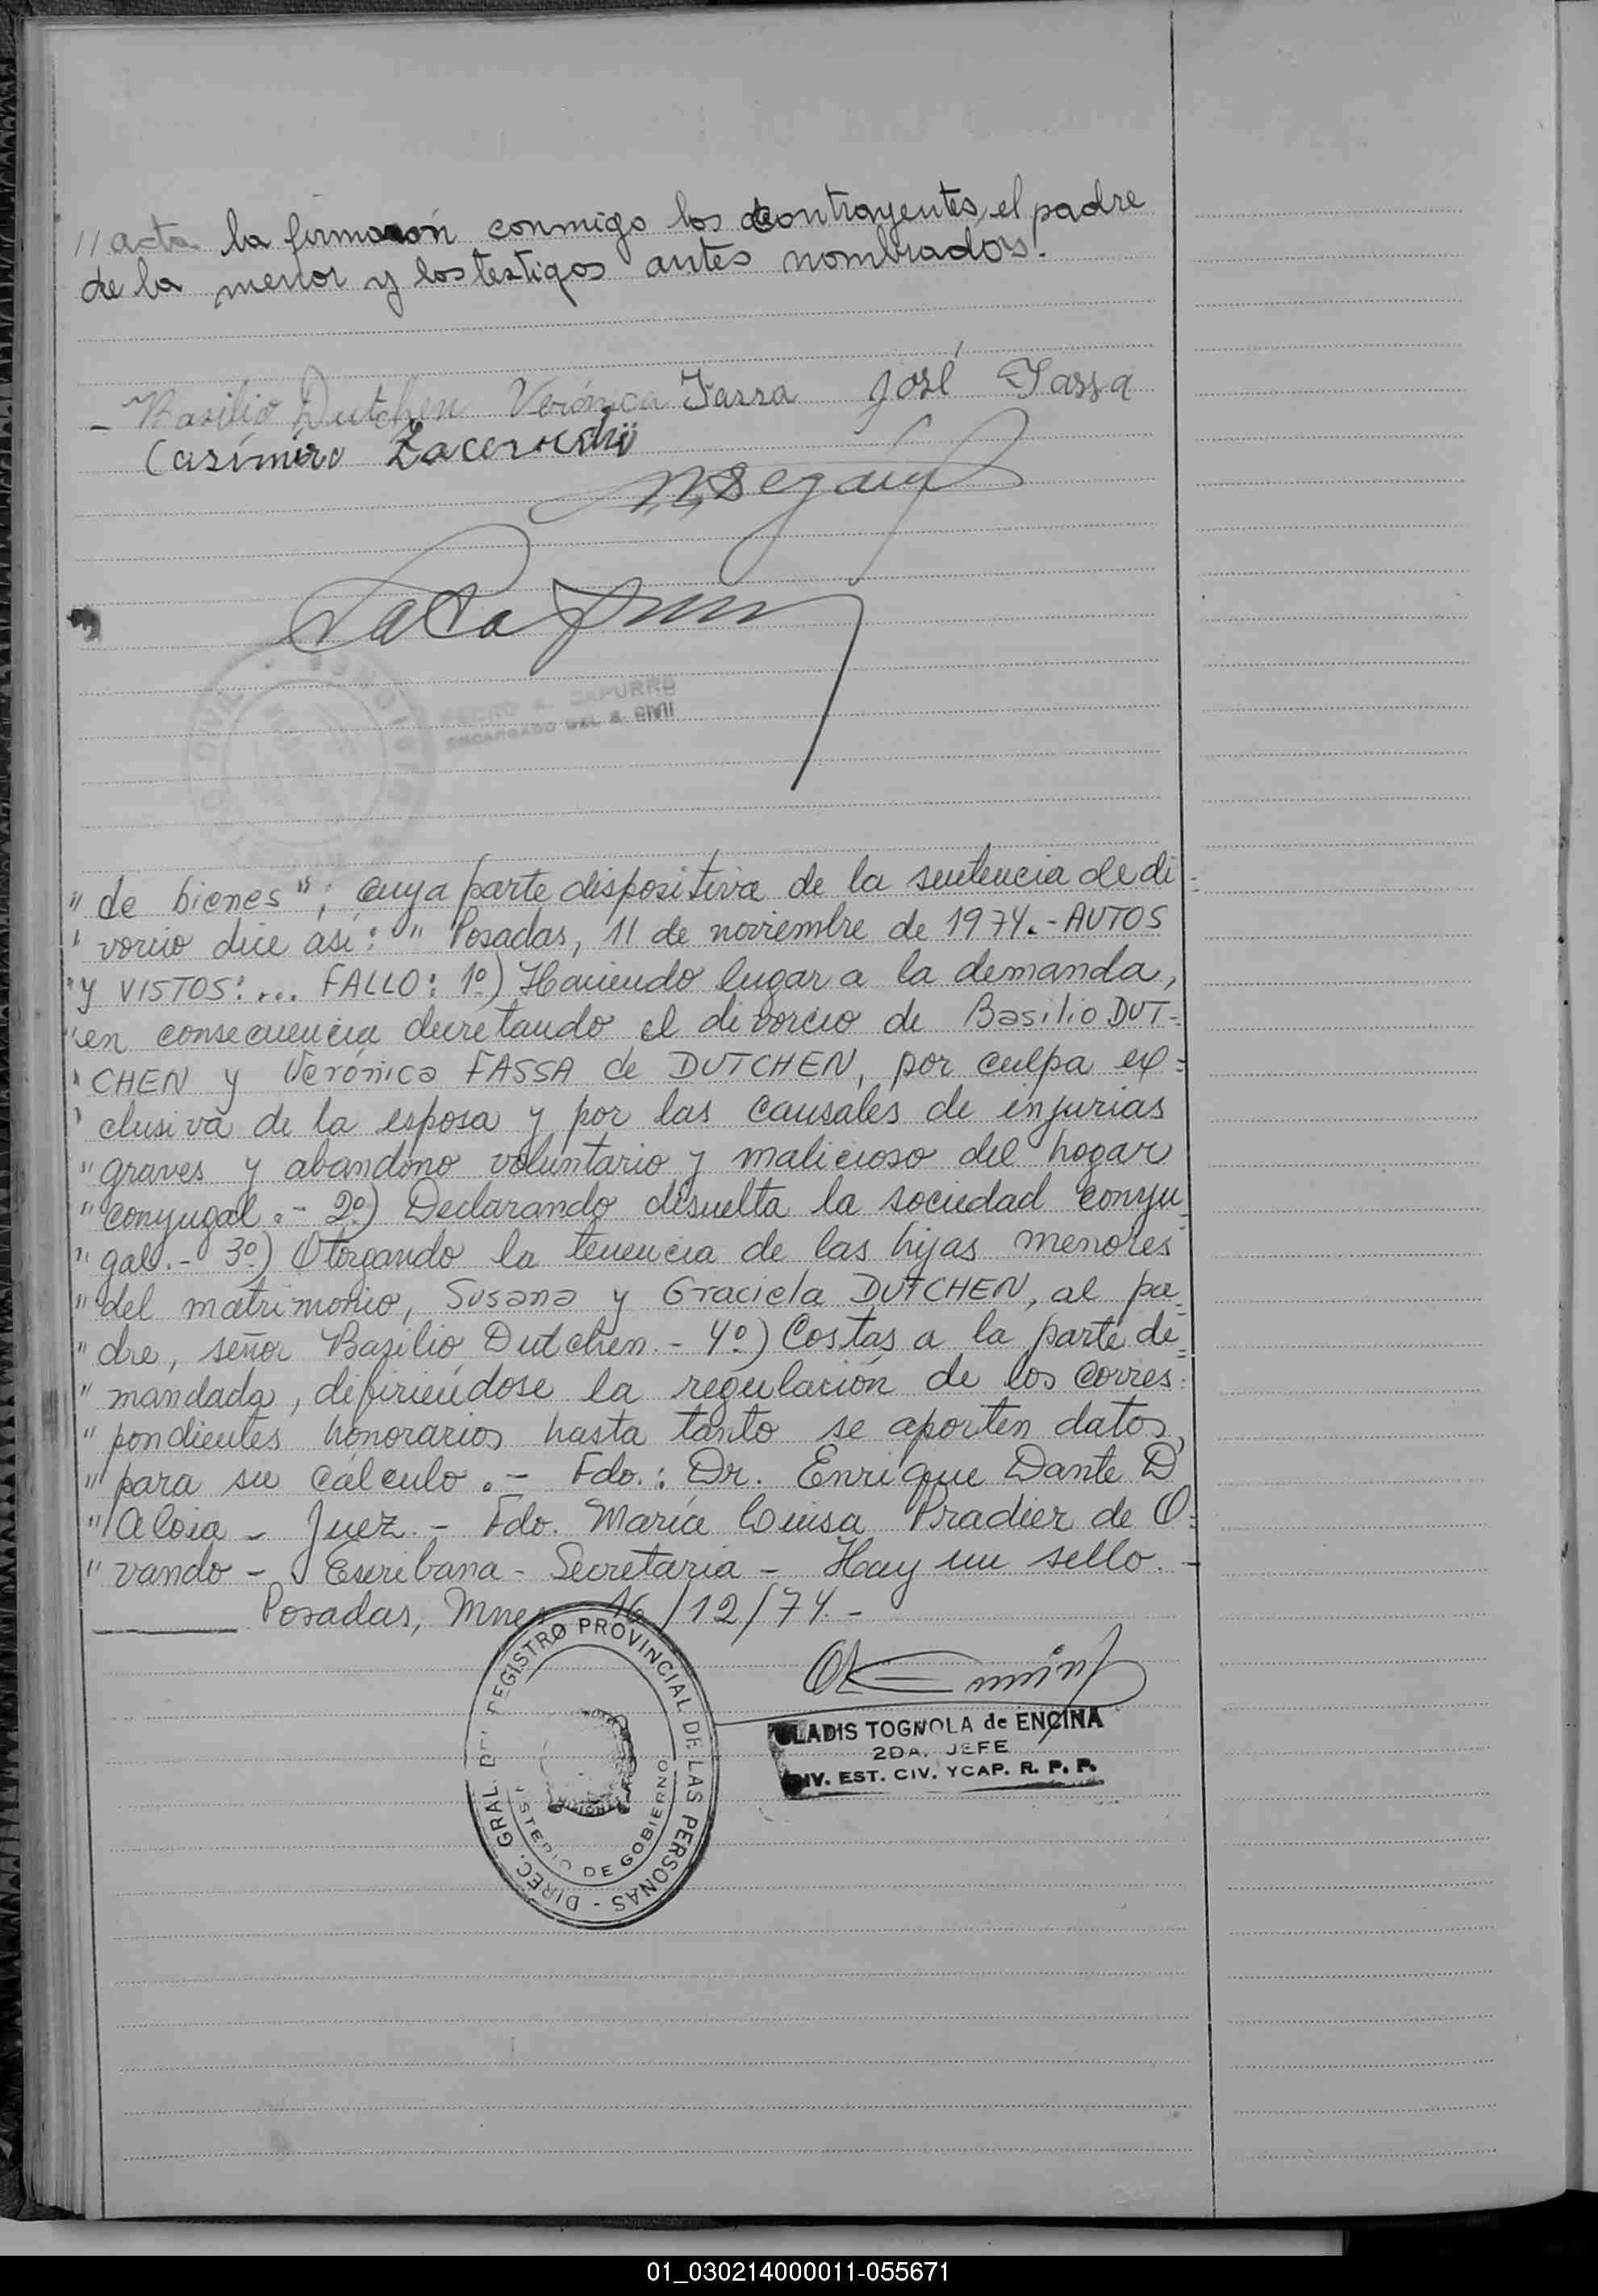 // acta la firmaron conmigo los contrayentes, el padre
de la menor y los testigos antes nombrados.
- Basilio Dutchen Verónica Fassa José Fassa
Casímiro
PEDRO CAPURRO
ENCARGADO DEL R. CIVIL
" de bienes"; cuya parte dispositiva de la sentencia de di=
" vorcio dice así: " Posadas, 11 de noviembre de 1974.- AUTOS
" y VISTOS: ... FALLO: 1º) Haciendo lugar a la demanda,
" en consecuencia decretando el divorcio de Basilio DUT-
" CHEN y Verónica FASSA de DUTCHEN, por culpa ex=
" clusiva de la esposa y por las causales de injurias
" graves y abandono voluntario y malicioso del hogar
" conyugal.- 2º) Declarando disuelta la sociedad conyu=
" gal.- 3º) Otorgando la tenencia de las hijas menores
" del matrimonio, Susana y Graciela DUTCHEN, al pa=
" dre, señor Basilio Dutchen.- 4º) Costas a la parte de=
" mandada, difiriéndose la regulación de los corres=
" pondientes honorarios hasta tanto se aporten datos
" para su cálculo.- Fdo.: Dr. Enrique Dante D
" Aloia - Juez.- Fdo. María Luisa Pradier de O=
" vando - Escribana - Secretaria - Hay un sello. -
Posadas, Mnes 16/12/74.-
DIREC. GRAL. DEL REGISTRO PROVINCIAL DE LAS PERSONAS -
ISTERIO DE GOBIERNO
GLADIS TOGNOLA de ENCINA
2DA. JEFE
DIV. EST. CIV. YCAP. R. P. P.
01_030214000011-055671